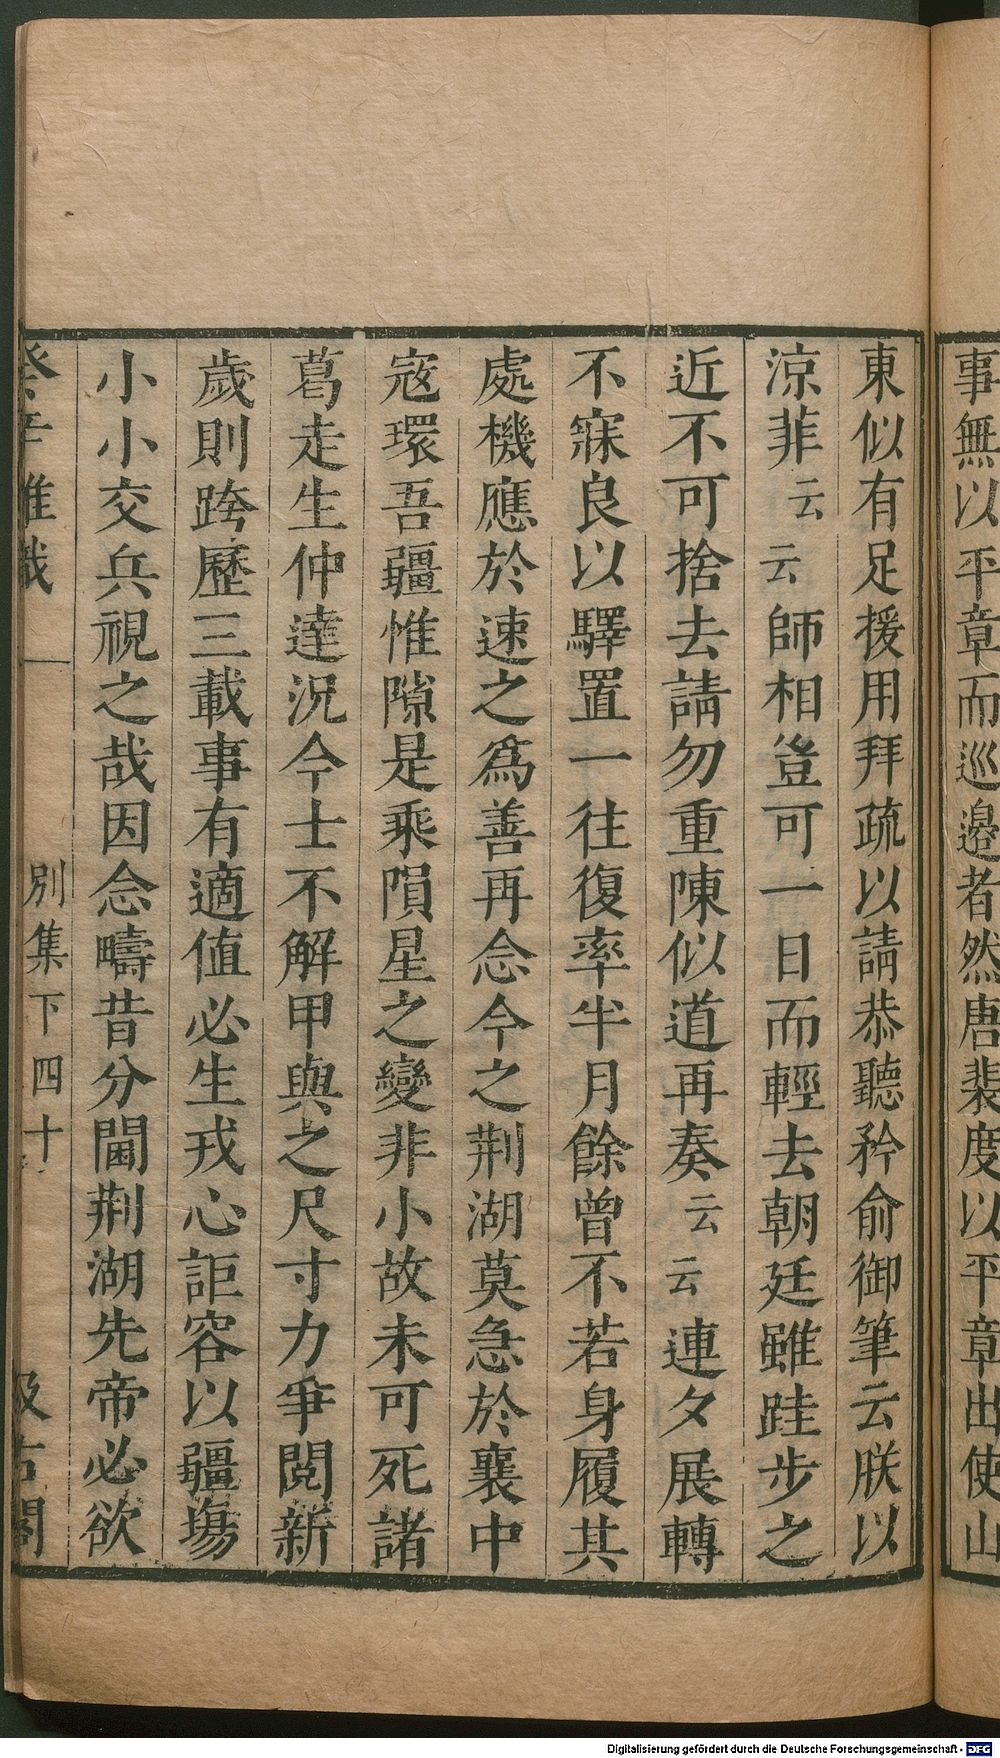 事無以平章而巡邉者然唐裴度以平章出使山
東似有足援用拜疏以請恭聽矜俞御筆云朕以
涼菲云云師相豈可一日而輕去朝廷雖跬步之
近不可捨去請勿重陳似道再奏云云連夕展轉
不寐良以驛置一往復率半月餘曾不若身履其
處機應於速之爲善再念今之荆湖莫急於襄中
寇環吾疆惟隙是乘隕星之變非小故未可死諸
葛走生仲達況今士不解甲與之尺寸力爭閱新
歲則跨歷三載事有適値必生戎心詎容以疆埸
小小交兵視之哉因念疇昔分閫荆湖先帝必欲
癸辛雜識
別集下四十
汲古閣
Digitalisierung gefördert durch die Deutsche Forschungsgemeinschaft - DFG